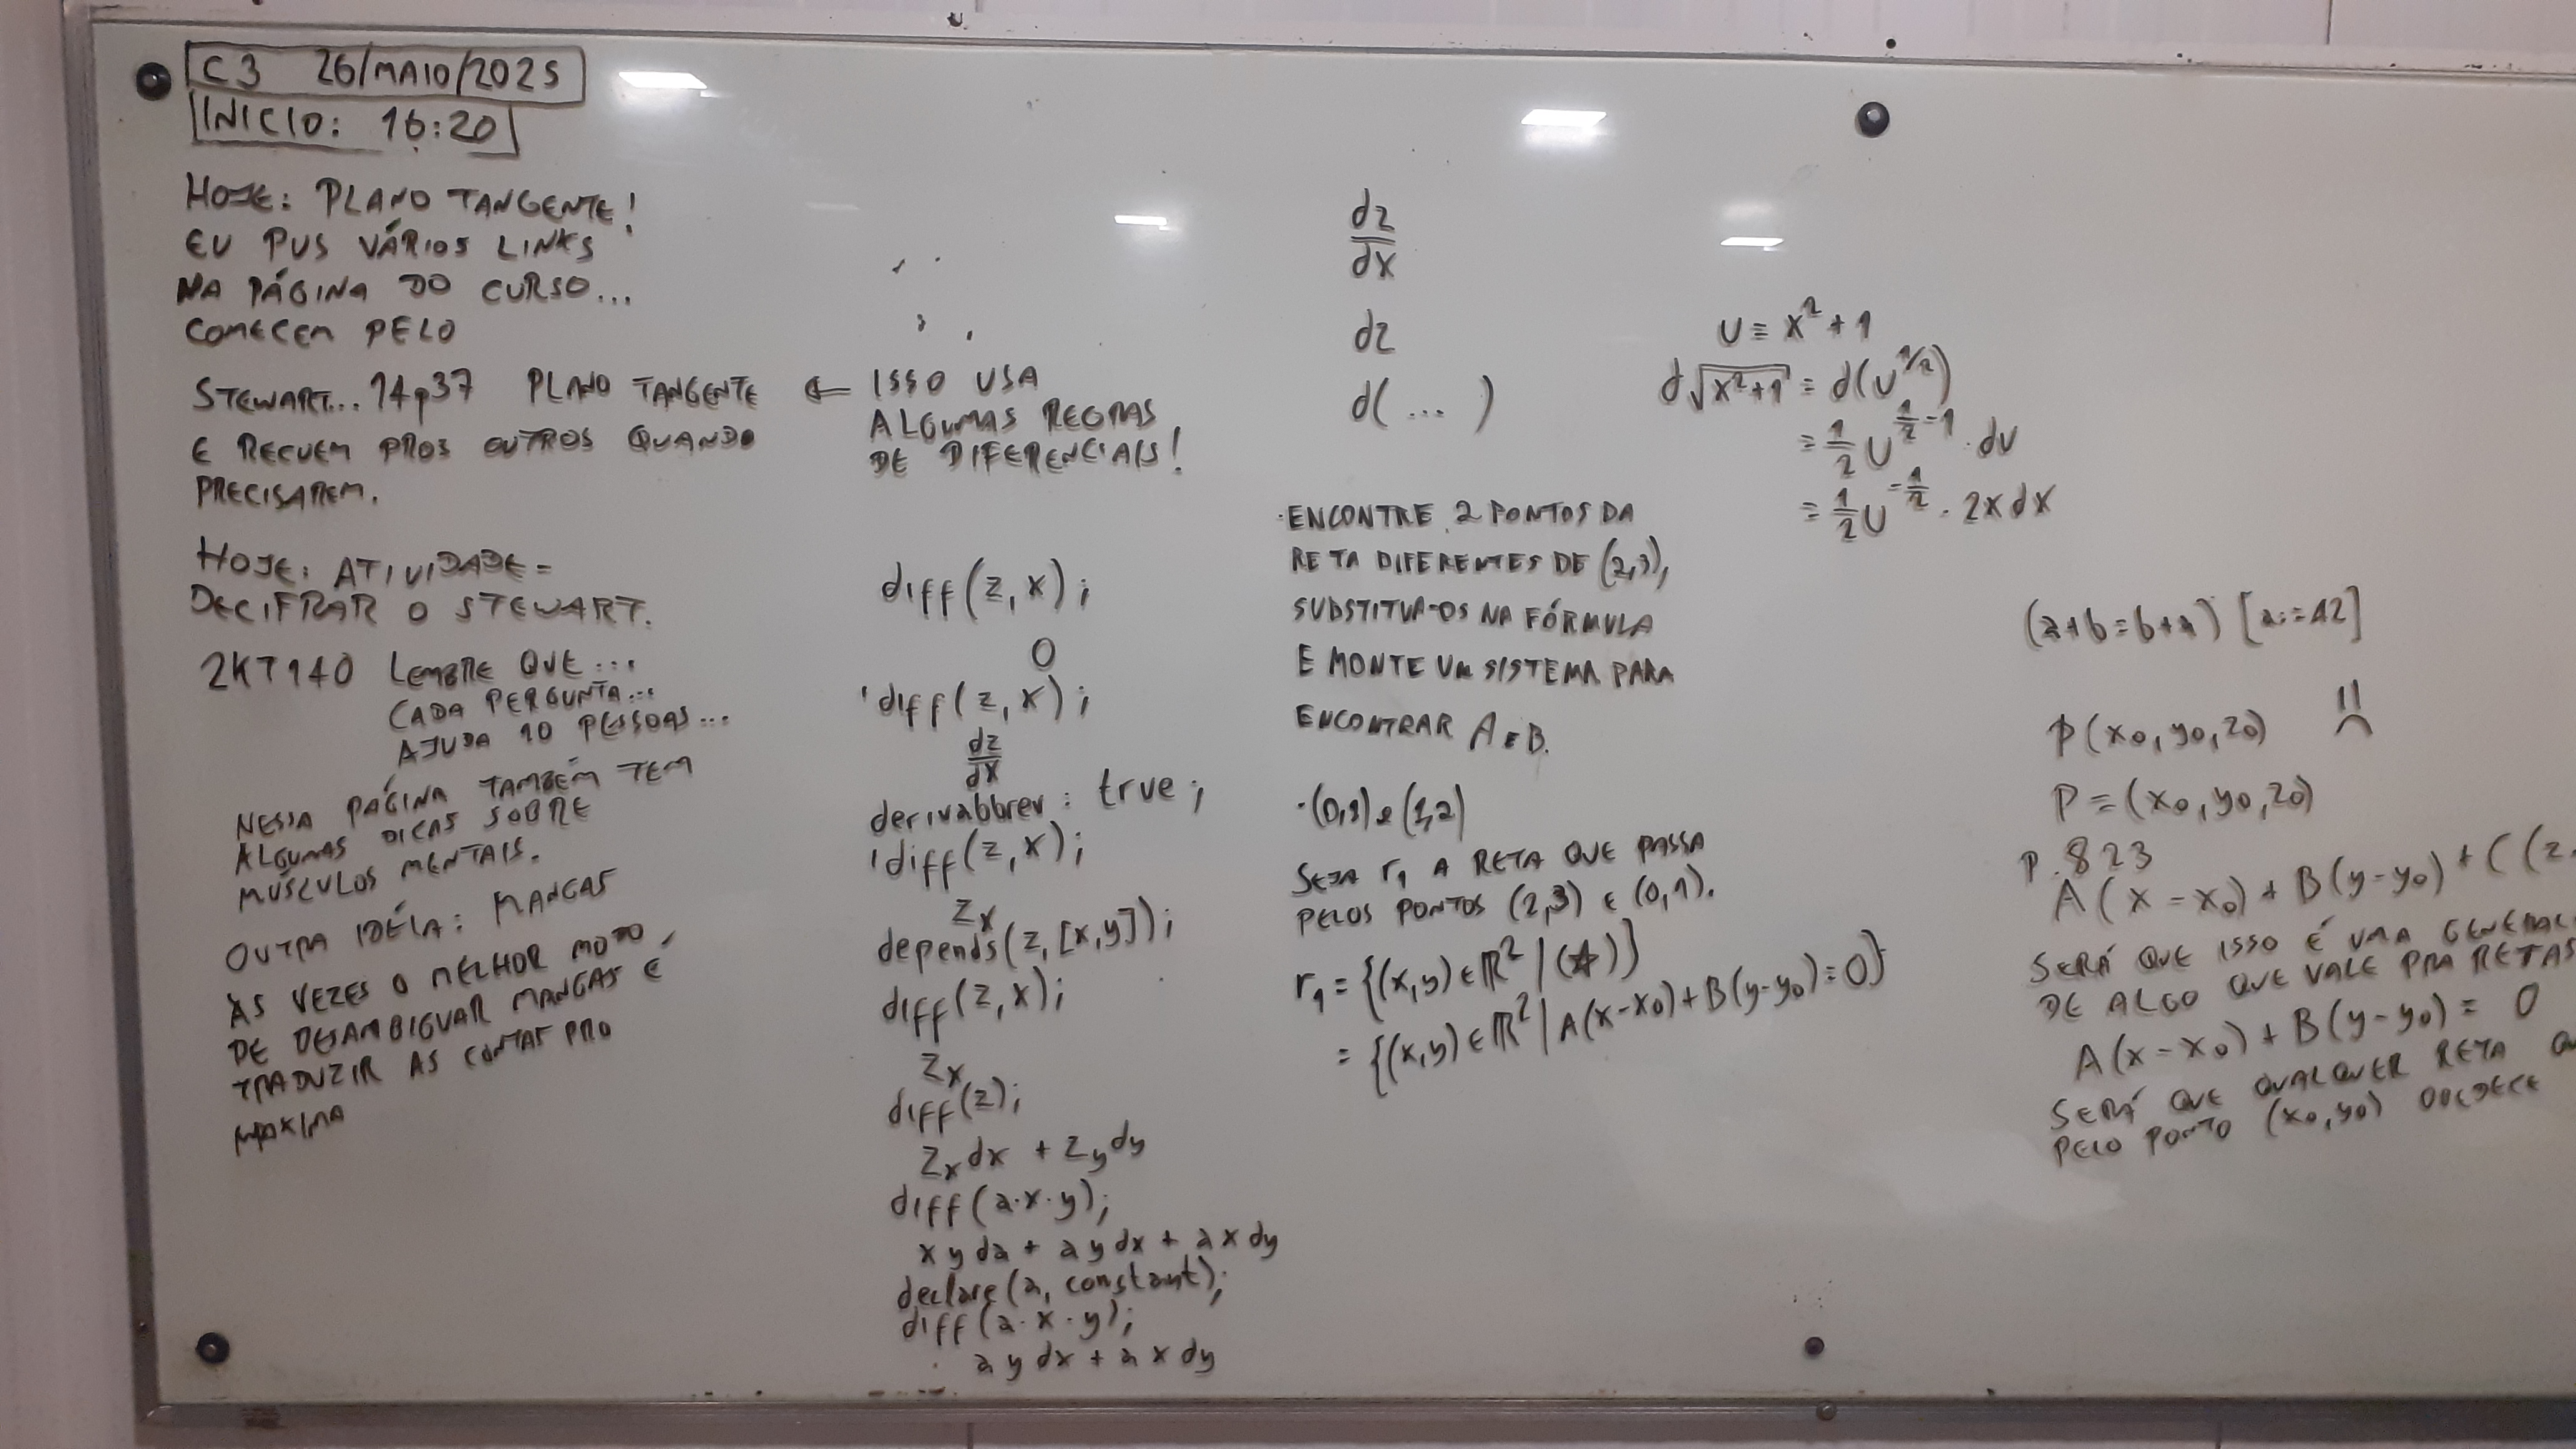 C3 26/MAIO/2025
INICIO: 16:20
HOJE: PLANO TANGENTE!
EU PUS VÁRIOS LINKS
NA PÁGINA DO CURSO...
COMECEM PELO
STEWART... 14p37 PLANO TANGENTE
E RECUEM PROS OUTROS QUANDO
PRECISAREM.
HOJE: ATIVIDADE =
DECIFRAR O STEWART.
2KT140 LEMBRE QUE...
CADA PERGUNTA...
AJUDA 10 PESSOAS...
NESSA PÁGINA TAMBÉM TEM
ALGUMAS DICAS SOBRE
MÚSCULOS MENTAIS.
OUTRA IDÉIA: MANGAS
ÀS VEZES O MELHOR MODO
DE DESAMBIGUAR MANGAS É
TRADUZIR AS CONTAS PRO
MAXIMA
← ISSO USA
ALGUMAS REGRAS
DE DIFERENCIAIS!
diff(z,x);
0
'diff(z,x);
dz/dx
derivabbrev: true;
'diff(z,x);
z_x
depends(z,[x,y]);
diff(z,x);
z_x
diff(z);
z_x dx + z_y dy
diff(a·x·y);
x y da + a y dx + a x dy
declare(a, constant);
diff(a·x·y);
a y dx + a x dy
dz/dx
dz
d(...)
·ENCONTRE 2 PONTOS DA
RETA DIFERENTES DE (2,3),
SUBSTITUA-OS NA FÓRMULA
E MONTE UM SISTEMA PARA
ENCONTRAR A E B.
·(0,1) e (1,2)
SEJA r₁ A RETA QUE PASSA
PELOS PONTOS (2,3) E (0,1).
r₁ = {(x,y) ∈ ℝ² | (☆)}
= {(x,y) ∈ ℝ² | A(x-x₀)+B(y-y₀)=0}
U = x² + 1
d√(x²+1) = d(U^(1/2))
= 1/2 U^(1/2 - 1) · dU
= 1/2 U^(-1/2) · 2x dx
(a+b=b+a) [a:=42]
P(x₀,y₀,z₀)
P = (x₀,y₀,z₀)
P.823
A(x-x₀) + B(y-y₀) + C(z
SERÁ QUE ISSO É UMA
DE ALGO QUE VALE PRA RETAS
A(x-x₀) + B(y-y₀) = 0
SERÁ QUE QUALQUER RETA
PELO PONTO (x₀,y₀) OBEDECE